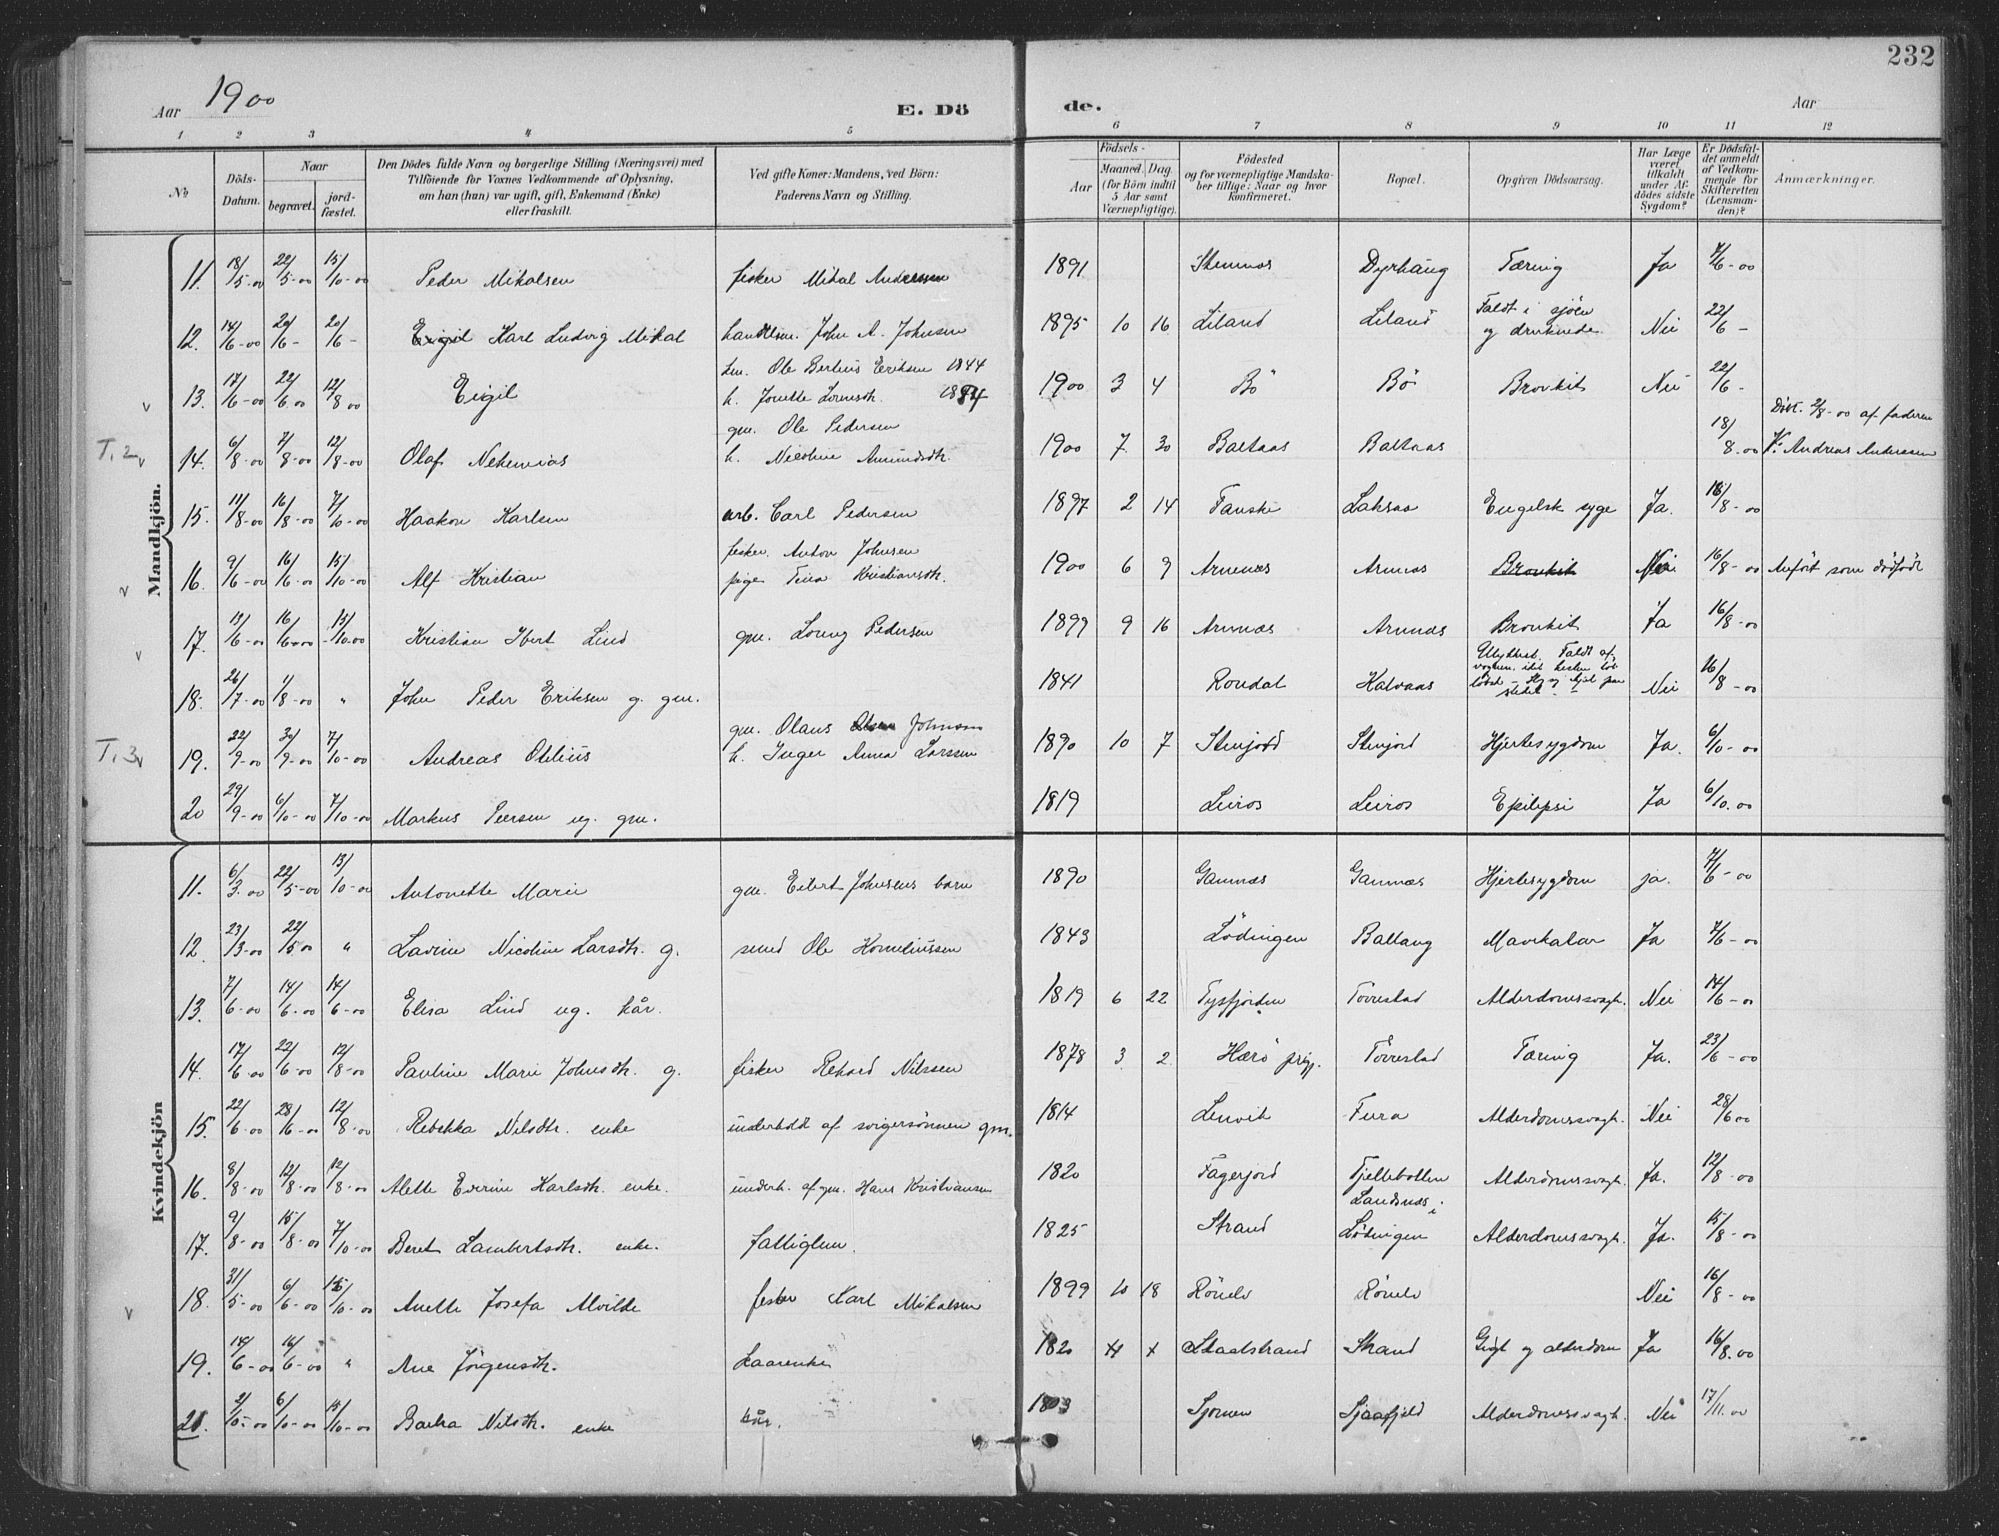 232
Aar 1900 E. Dö de. Aar
1 2 3 4 5 6 7 8 9 10 11 12
No.
Döds-Datum.
Naar
begravet.
jord-fæstet.
Den Dödes fulde Navn og borgerlige Stilling (Næringsvei) med
Tilföiende for Voxnes Vedkommende af Oplysning,
om han (hun) var ugift, gift, Enkemand (Enke)
eller fraskilt.
Ved gifte Koner: Mandens, ved Börn:
Faderens Navn og Stilling.
Födsels-
Aar
Maaned. Dag.
(for Börn indtil
5 Aar samt
Værnepligtige).
Födested
og for værnepligtige Mandska-
ber tillige: Naar og hvor
konfirmeret.
Bopæl.
Opgiven Dödsaarsag.
Har Læge
været
tilkaldt
under Af-
dödes sidste
Sygdom?
Er Dödsfal-
det anmeldt
af Vedkom-
mende for
Skifteretten
(Lensman-
den)?
Anmærkninger.
Mandkjön.
11. 18/5-00 22/5-00 15/10-00 Peder Mikalsen fisker Mikal Anderssen 1891 Dyrhaug Tæring Ja 7/6-00
12. 14/6-00 20/6- 20/6- Eigil Karl Ludvig Mikal handelsm. John A. Johnsen 1895 10 16 Liland Liland Faldt i sjöen
og druknede. Nei 22/6-
13. 17/6-00 22/6.00 12/8 00 Eigil Ole Bertius Eriksen 1844
h. Jonette Lorensdtr. 1900 3 4 Bö Bö Bronkit Nei 22/6-
T. 2 14. 6/8-00 7/8-00 12/8-00 Olaf Nehemias gm. Ole Pedersen
h. Nicoline Amundsdtr. 1900 7 30 Baltaas Baltaas 18/8-00 Döbt. 2/8-00 af faderen
V: Andreas Anderssen
15. 11/8-00 16/8-00 7/10-00 Haakon Karlsen arb. Carl Pedersen 1897 2 14 Fauske Laksaa Engelsk syge Ja. 18/8-00
16. 9/6-00 16/6-00 15/10-00 Alf Kristian fisker. Anton Johnsen
pige Tina Kristiansdtr. 1900 6 9 Arnenæs Arnnæs Bronkit 16/8-00 Anfört som dödfödt
17. 13/6-00 16/6-00 15/10-00 Kristian Ibert Lind gm. Loreng Pedersen 1899 9 16 Arnnæs Arnnæs Bronkit Ja 16/8-00
18. 26/7-00 1/8-00 " John Peder Eriksen g. gm. 1841 Rondal Halvaas Ulykkest. Faldt af
vognen, idet hesten löb Nei 16/8-00
T. 3 19. 22/9-00 30/9-00 7/10-00 Andreas Otelius gm. Olaus Johnsen
h. Inger Anna Larssen 1890 10 7 Stenjord Stenjord Hjertesygdom Ja. 6/10-00
20 29/9-00 6/10-00 7/10-00 Markus Peersen ug. gm. 1819 Leiros Leiros Epilepsi Ja 6/10.00
Kvindekjön
11. 6/3.00 22/5-00 13/10-00 Antonette Marie gm. Eibert Johnsens barn 1890 Gamnæs Gamnæs Hjertesygdom ja. 7/6-00
12. 23/3-00 22/5 00 " Lavine Nicoline Larsdtr. g. smed Ole Korneliussen 1843 Lödingen Ballang Mavekatar Ja 7/6-00
13. 7/6-00 14/6-00 14/6-00 Elisa Lind ug. kår. 1819 6 22 Tysfjorden Torrestad Alderdomssvagh. Nei 14/6-00
14. 17/6.00 22/6-00 12/8-00 Pauline Marie Johnsdtr. g. fisker Rikard Nilssen 1878 3 2 Herö prgj. Torrestad Tæring Ja. 23/6-00
15. 22/6-00 28/6-00 12/8-00 Rebekka Nilsdtr. enke underholdt af svigersönnen gm. 1814 Lenvik Fura Alderdomssvagh. Nei 28/6 00
16. 8/8-00 12/8-00 12/8-00 Alette Everine Karlsdtr. enke. underh. af gm. Hans Kristiansen 1820 Fagerjord Fjellbotten Alderdomssvagh. Ja. 12/8-00
17. 9/8-00 15/8-00 7/10-00 Beret Lambertsdtr. enke. fattiglem. 1825 Strand Sandsnæs i
Lödingen Alderdomssvagh. Ja. 15/8-00
18. 31/5-00 6/6-00 15/10-00 Anette Josefa Alvilde fisker Karl Mikalsen 1899 10 18 Rönelv Rönelv Nei 16/8-00
19. 14/6-00 16/6-00 " Ane Jörgensdtr. kaarenke 1820 Skaalstrand Strand Gigt og alderdom Ja 16/8.00
20. 2/10-00 6/10-00 15/10-00 Nilsdtr. enke kår. 1803 Alderdomssvagh. Nei 17/11.00